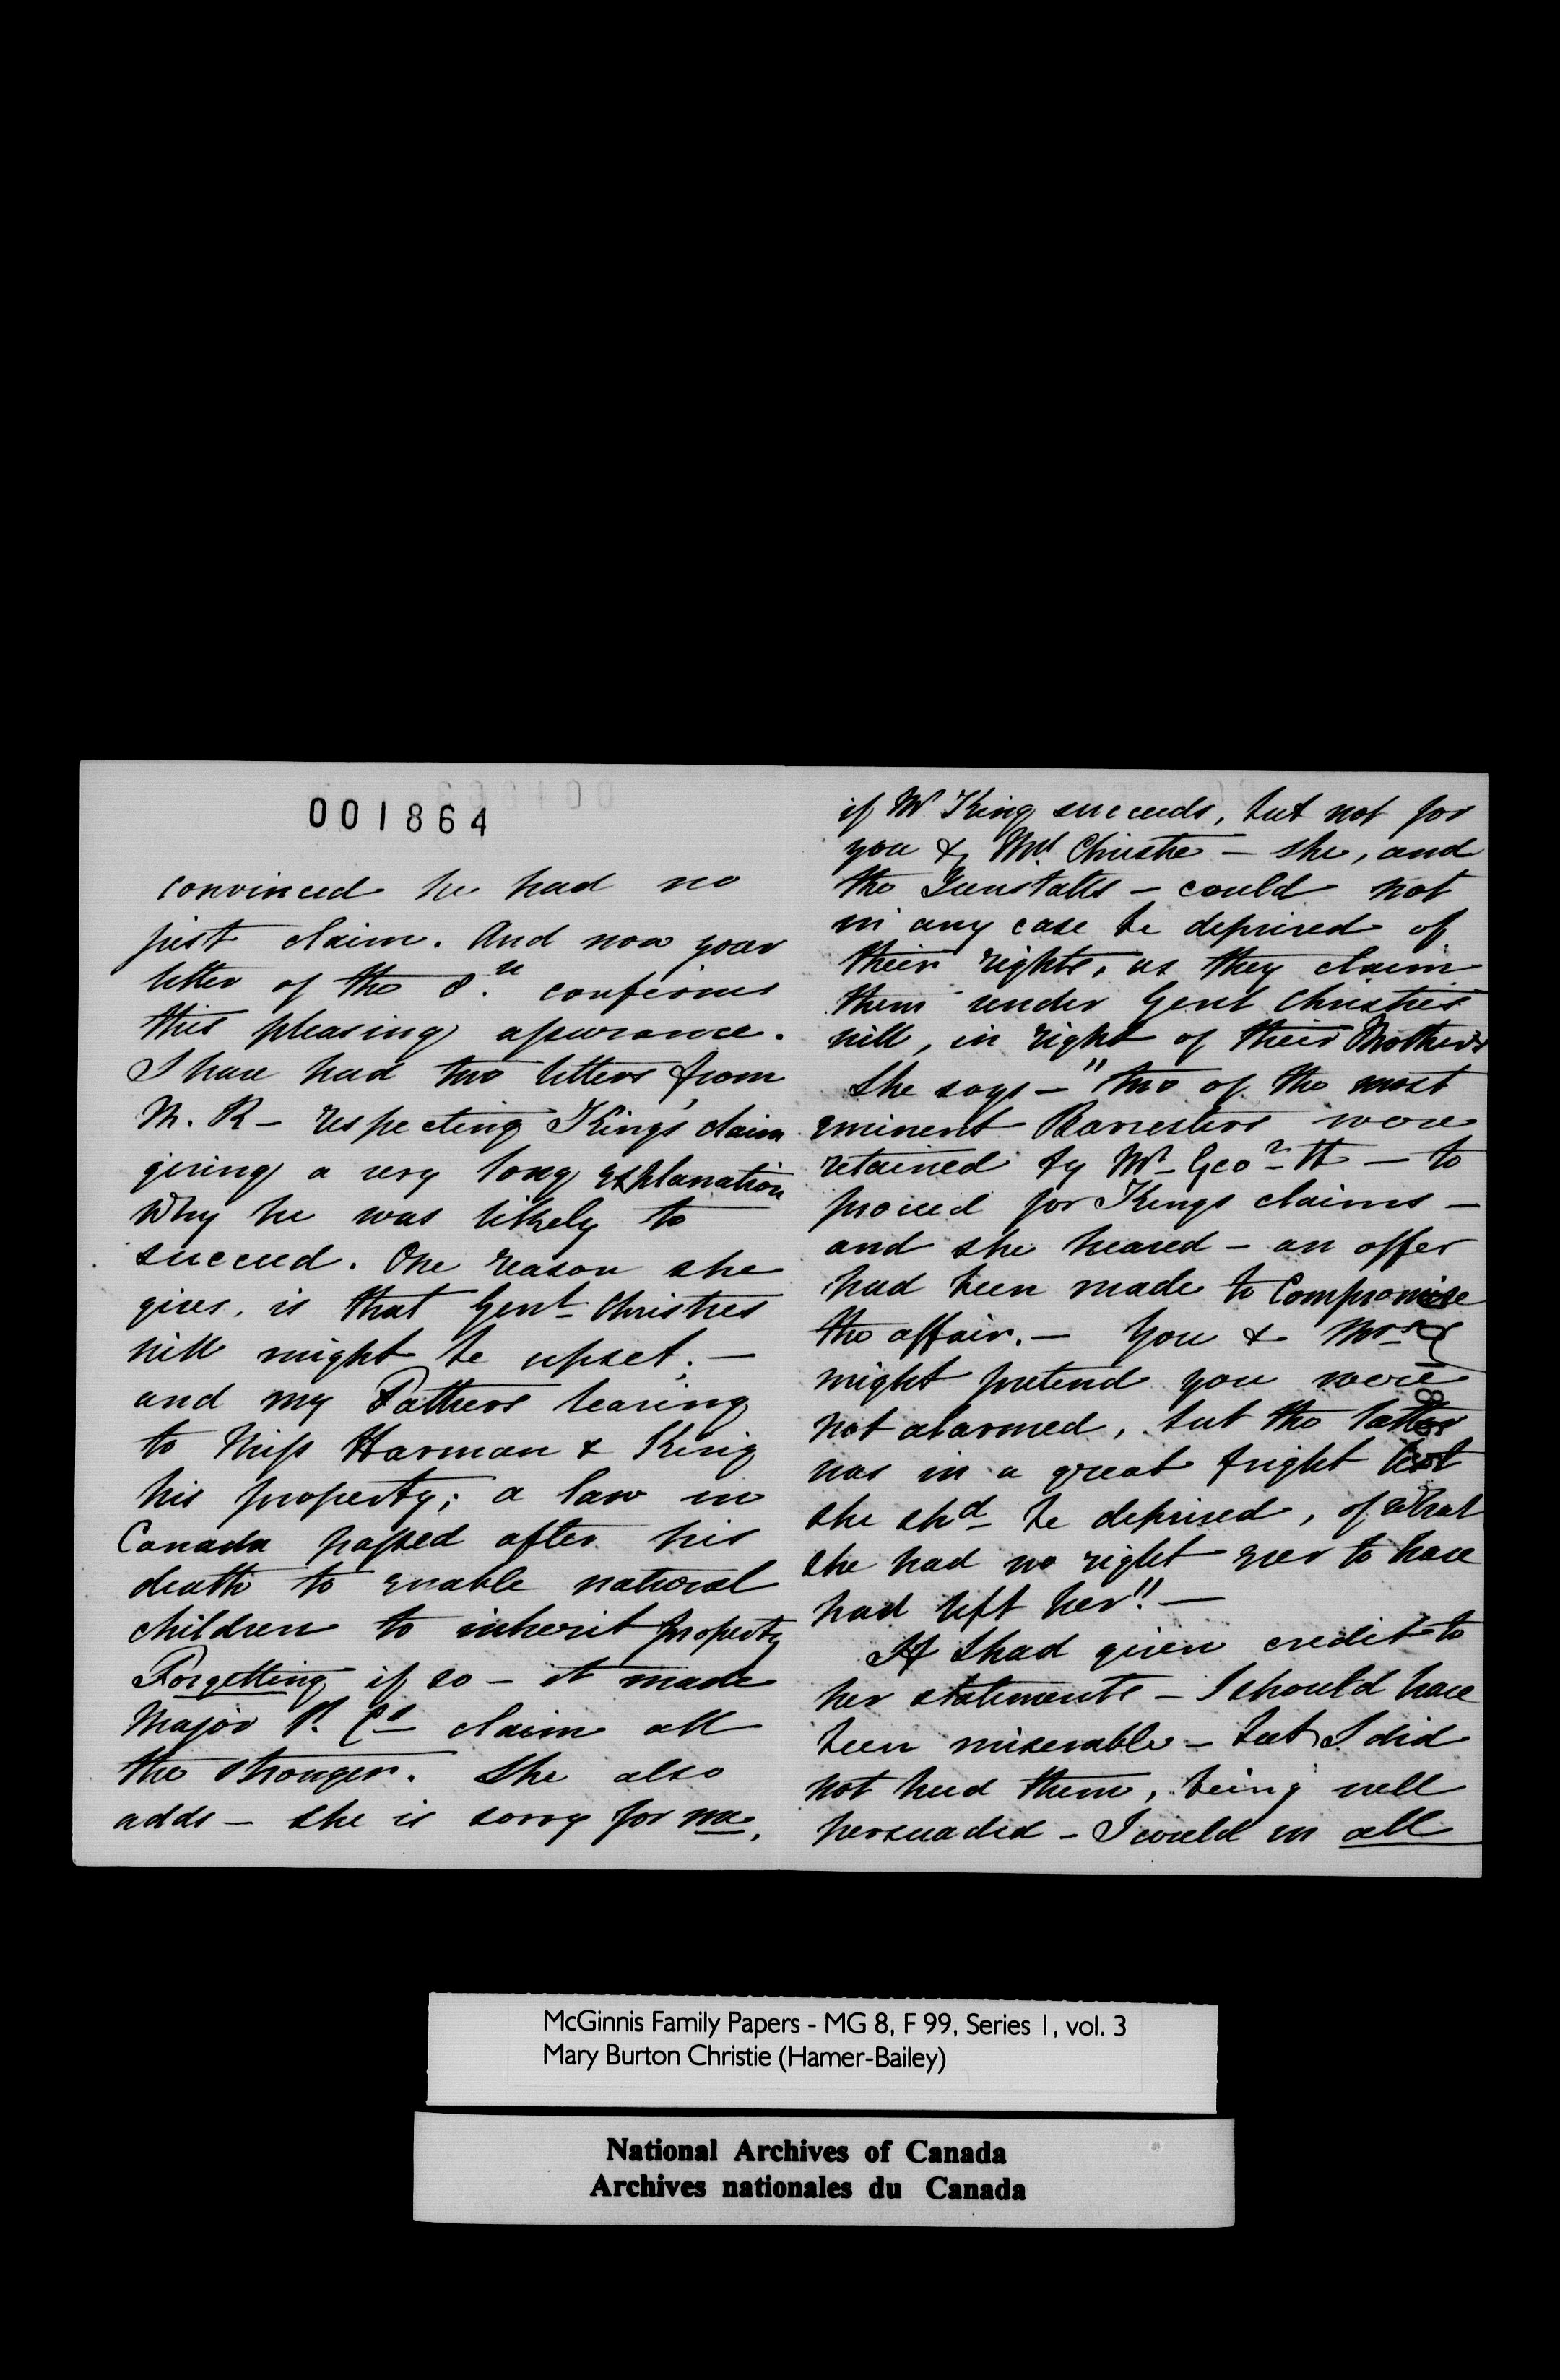 001864
convinced he had no
just claim. And now your
letter of the 8.th confirms
this pleasing assurance.
I have had two letters from
M. R – respecting King's claim
giving a very long explanation
why he was likely to
succeed. One reason she
gives, is that Genl Christies
will might be upset; –
and my Fathers leaving
to Miss Harman & King
his property; a law in
Canada passed after his
death to enable natural
children to inherit property
Forgetting if so – it made
Major P. Cs claim all
the stronger. She also
adds – she is sorry for me,
if Mr King succeeds, but not for
you & Mrs Christie – she, and
the Tunstalls – could not
in any case be deprived of
their rights, as they claim
them under Genl Christies
will, in right of their Mothers
She says – "two of the most
eminent Barristers were
retained by Mr Geo – to
proceed for Kings claims –
and she heared – an offer
had been made to Compromise
the affair. – You & Mrs C
might pretend you were
not alarmed, but the latter
was in a great fright lest
she shd be deprived, of what
she had no right ever to have
had left her"! –
If I had given credit to
her statements – I should have
been miserable – but I did
not heed them, being well
persuaded – I would in all
McGinnis Family Papers - MG 8, F 99, Series 1, vol. 3
Mary Burton Christie (Hamer-Bailey)
National Archives of Canada
Archives nationales du Canada